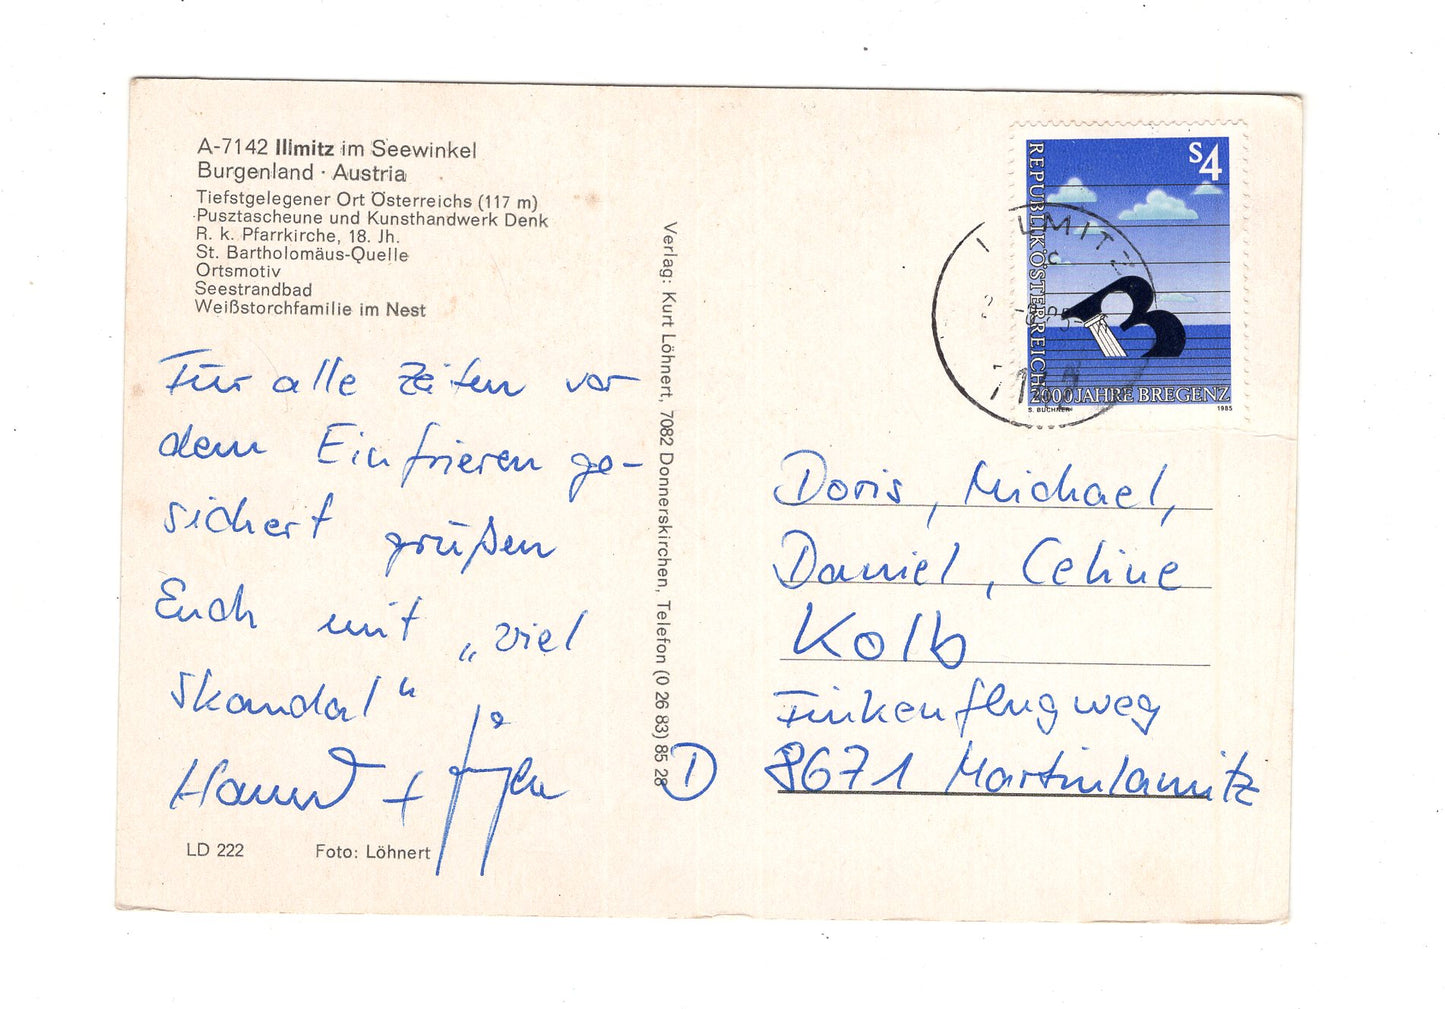 A-7142 Illmitz im Seewinkel
Burgenland · Austria
Tiefstgelegener Ort Österreichs (117 m)
Pusztascheune und Kunsthandwerk Denk
R. k. Pfarrkirche, 18. Jh.
St. Bartholomäus-Quelle
Ortsmotiv
Seestrandbad
Weißstorchfamilie im Nest
Für alle Zeiten vor
dem Einfrieren ge-
sichert grüßen
Euch mit „viel
Skandal“
+
LD 222
Foto: Löhnert
Verlag: Kurt Löhnert, 7082 Donnerskirchen, Telefon (0 26 83) 85 28
S4
REPUBLIK ÖSTERREICH
2000 JAHRE BREGENZ
S. BUCHNER
1985
ILLMITZ
c
7142
Doris, Michael,
Daniel, Celine
Kolb
Finkenflugweg
D 8671 Martinlamitz